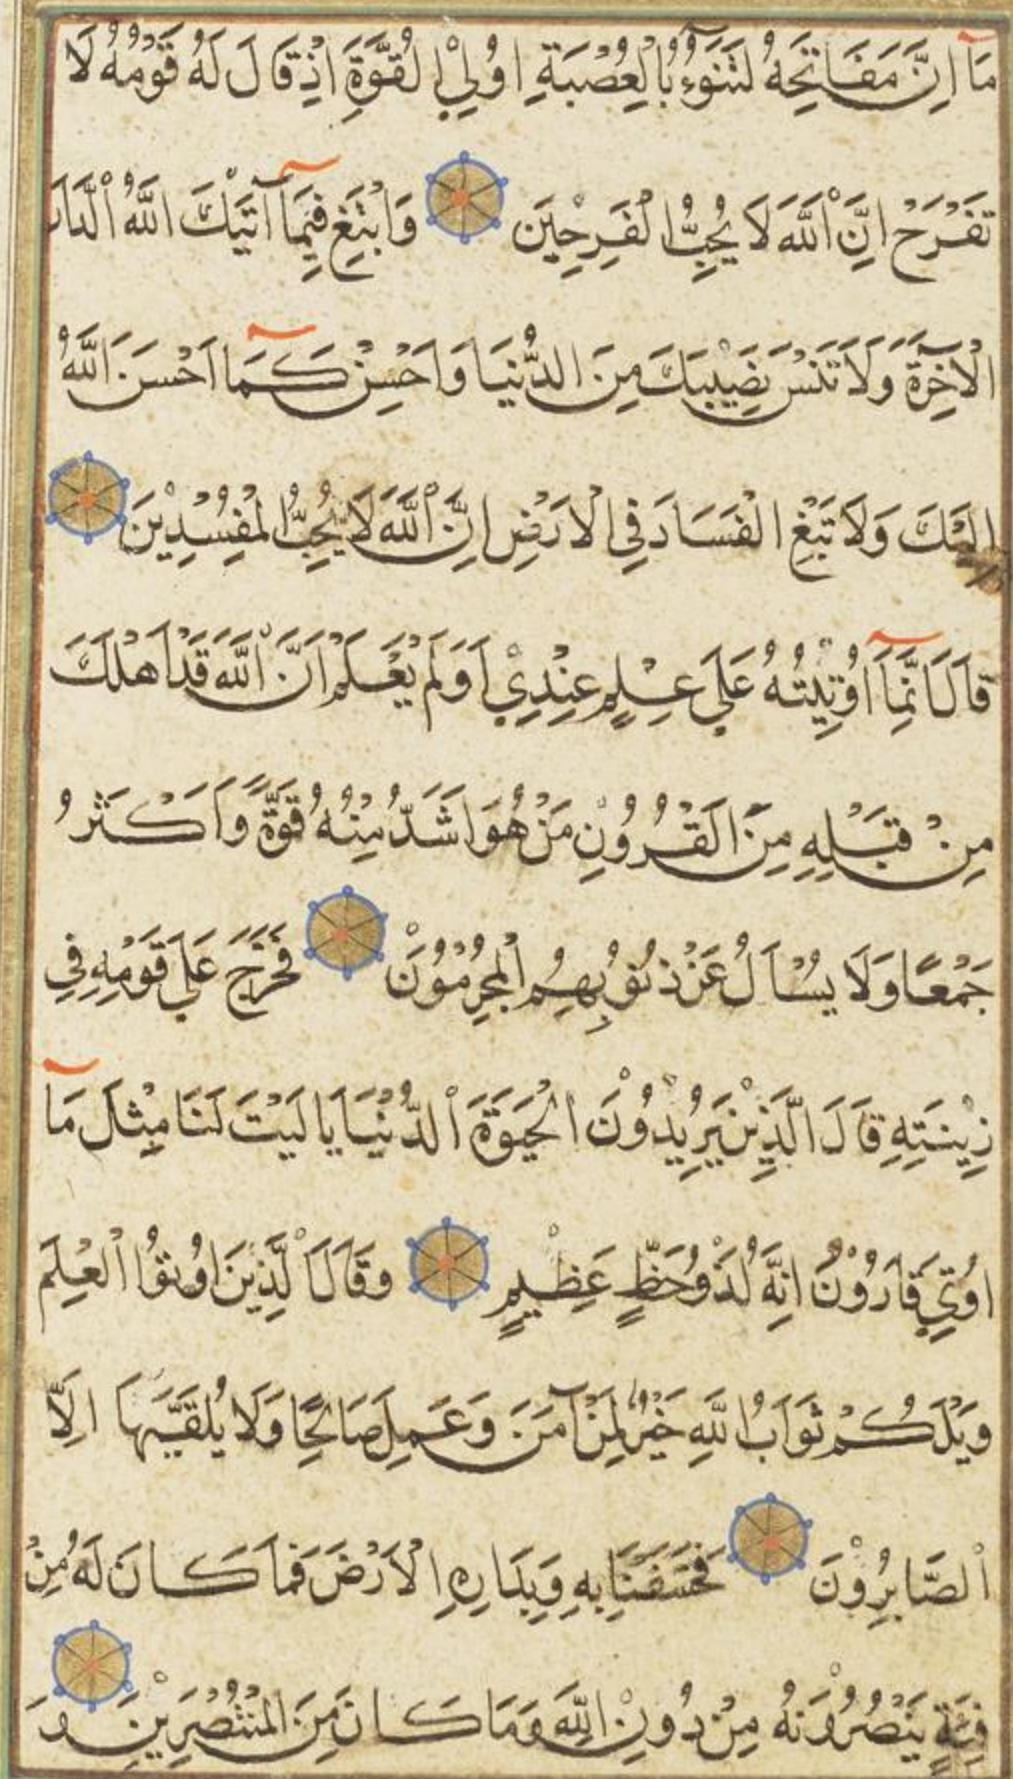 مَآ اِنَّ مَفَاتِحَهُ لَتَنُوٓءُ بِالْعُصْبَةِ اُولِي الْقُوَّةِ اِذْ قَالَ لَهُ قَوْمُهُ لَا
تَفْرَحْ اِنَّ اللَّهَ لَا يُحِبُّ الْفَرِحِينَ وَابْتَغِ فِيمَآ آتٰيكَ اللَّهُ الدَّارَ
الْآخِرَةَ وَلَا تَنْسَ نَصِيبَكَ مِنَ الدُّنْيَا وَاَحْسِنْ كَمَآ اَحْسَنَ اللَّهُ
اِلَيْكَ وَلَا تَبْغِ الْفَسَادَ فِي الْاَرْضِ اِنَّ اللَّهَ لَا يُحِبُّ الْمُفْسِدِينَ
قَالَ اِنَّمَآ اُوتِيتُهُ عَلَى عِلْمٍ عِنْدِي اَوَلَمْ يَعْلَمْ اَنَّ اللَّهَ قَدْ اَهْلَكَ
مِنْ قَبْلِهِ مِنَ الْقُرُونِ مَنْ هُوَ اَشَدُّ مِنْهُ قُوَّةً وَاَكْثَرُ
جَمْعًا وَلَا يُسْاَلُ عَنْ ذُنُوبِهِمُ الْمُجْرِمُونَ فَخَرَجَ عَلَى قَوْمِهِ فِي
زِينَتِهِ قَالَ الَّذِينَ يُرِيدُونَ الْحَيٰوةَ الدُّنْيَا يَا لَيْتَ لَنَا مِثْلَ مَآ
اُوتِيَ قَارُونُ اِنَّهُ لَذُو حَظٍّ عَظِيمٍ وَقَالَ الَّذِينَ اُوتُوا الْعِلْمَ
وَيْلَكُمْ ثَوَابُ اللَّهِ خَيْرٌ لِمَنْ آمَنَ وَعَمِلَ صَالِحًا وَلَا يُلَقّٰيهَا اِلَّا
الصَّابِرُونَ فَخَسَفْنَا بِهِ وَبِدَارِهِ الْاَرْضَ فَمَا كَانَ لَهُ مِنْ
فِئَةٍ يَنْصُرُونَهُ مِنْ دُونِ اللَّهِ وَمَا كَانَ مِنَ الْمُنْتَصِرِينَ وَ